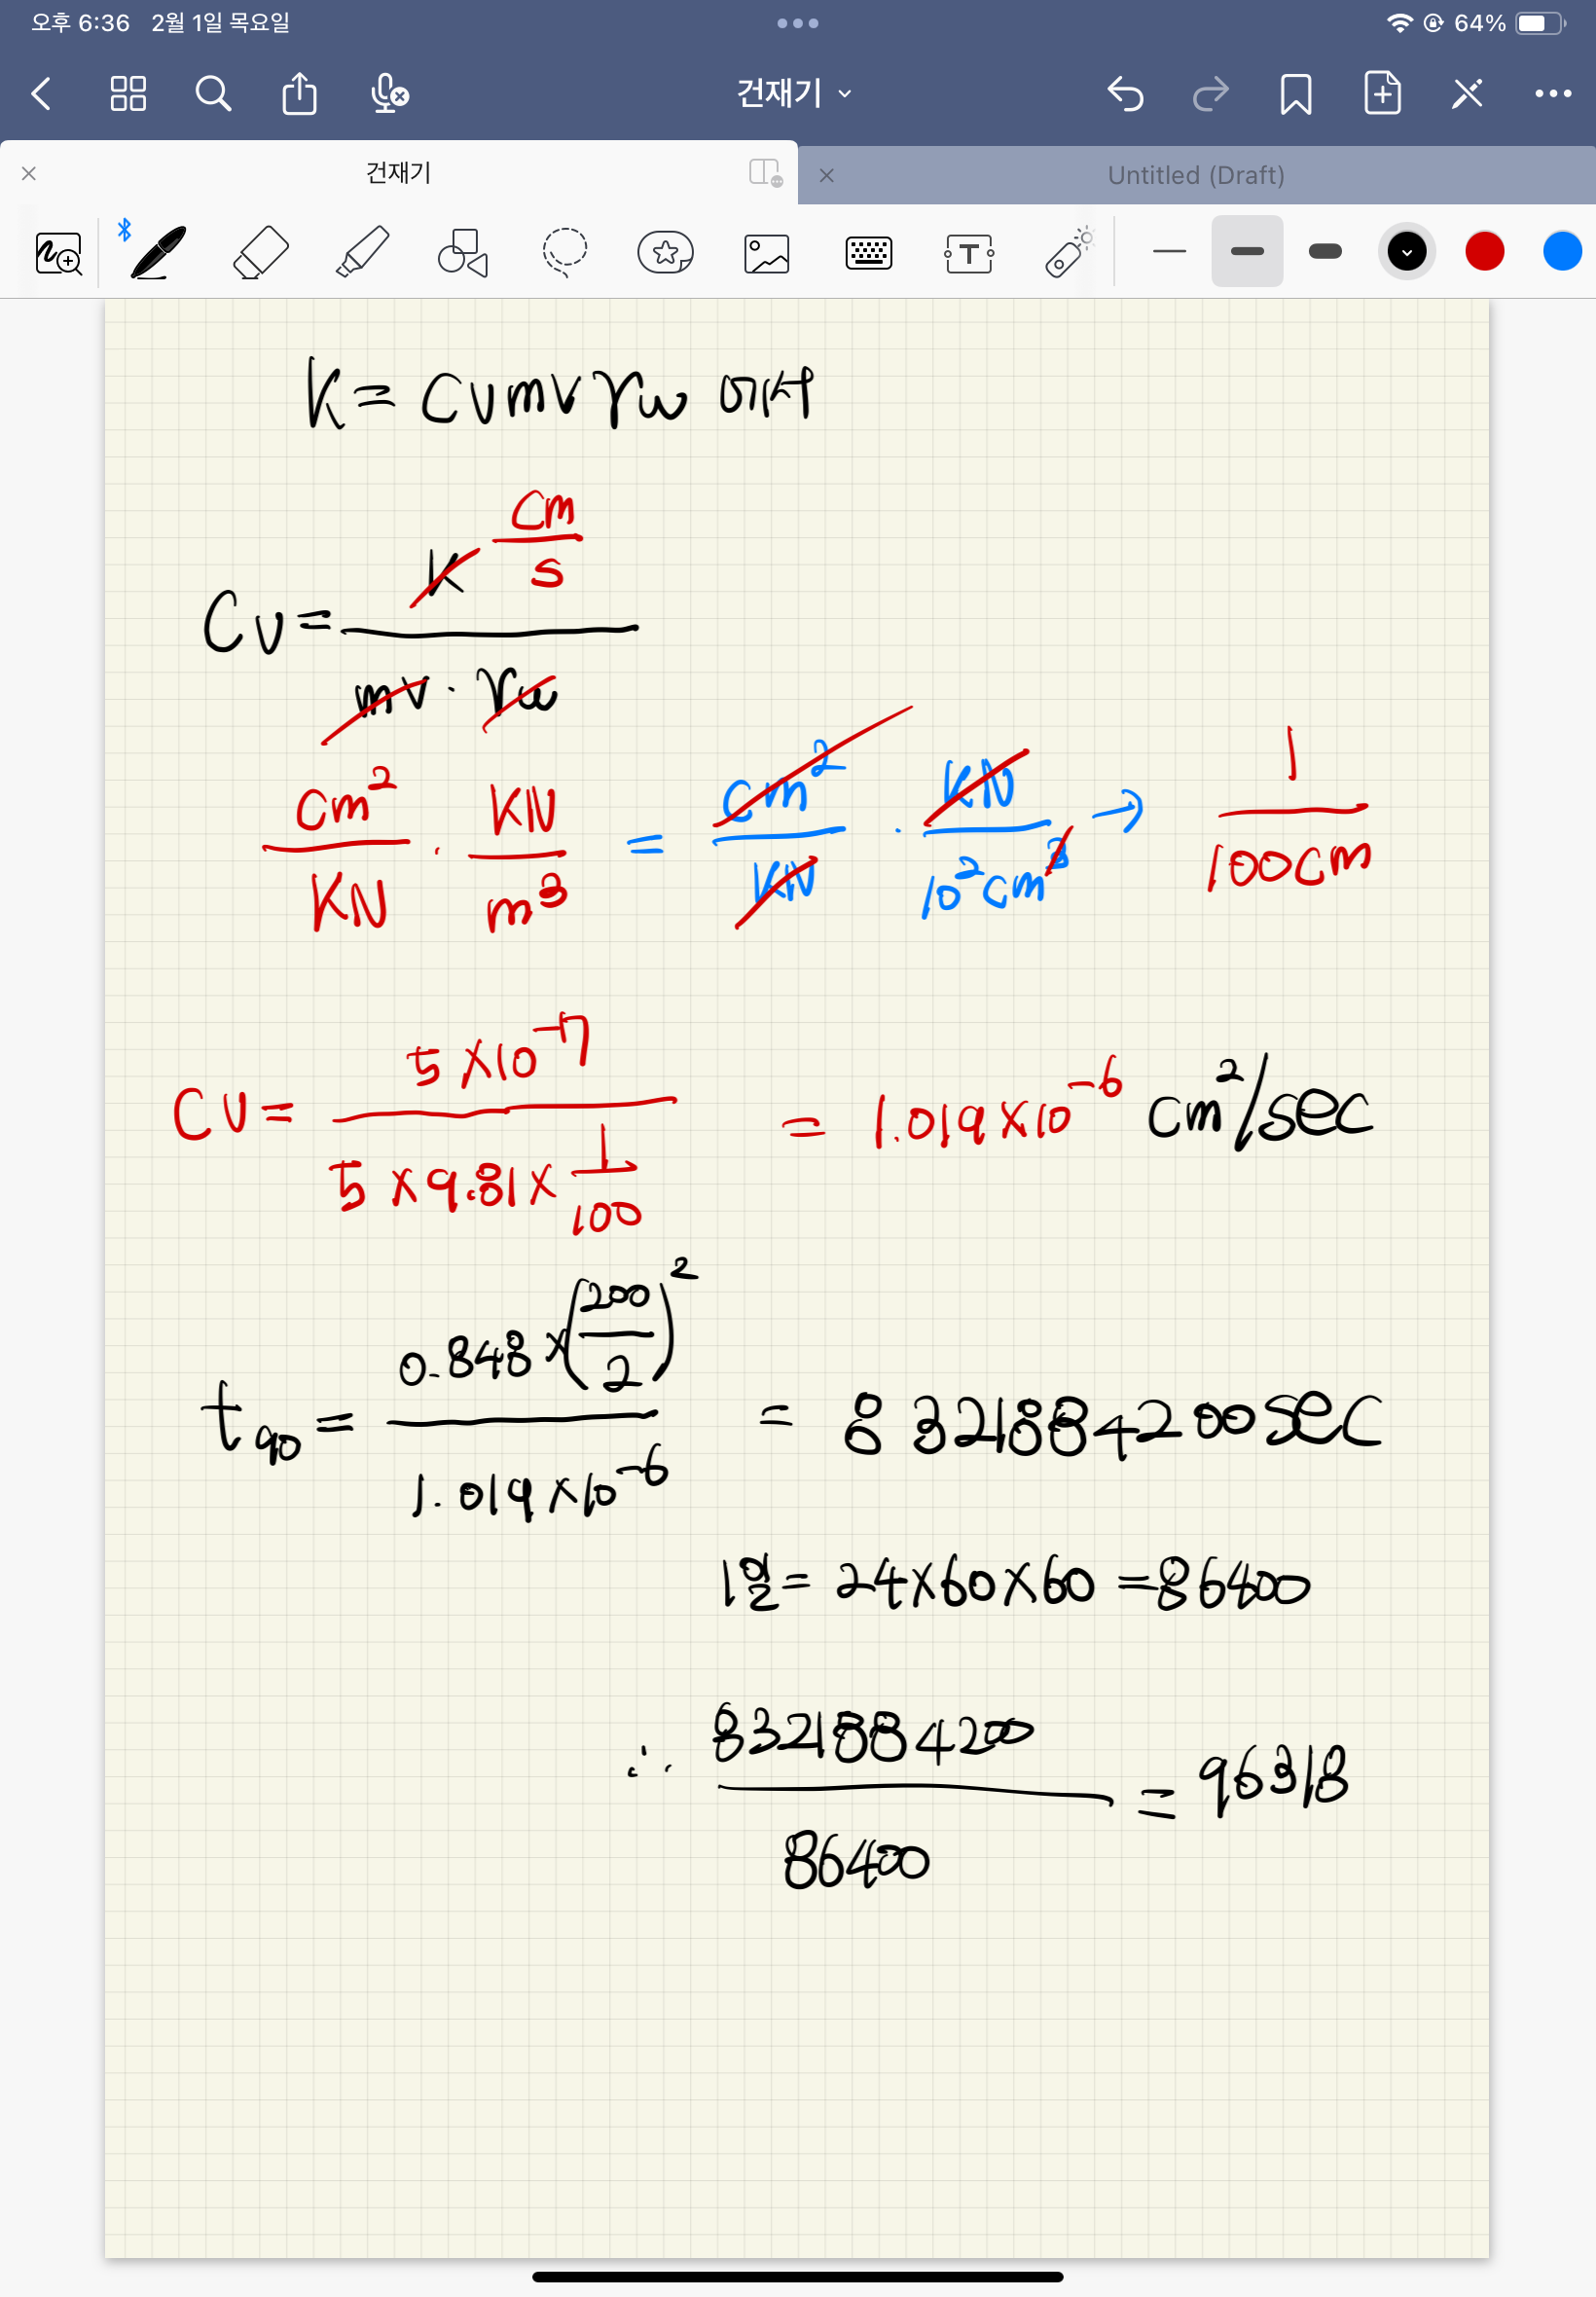 오후 6:36 2월 1일 목요일
64%
건재기
건재기
Untitled (Draft)
K = Cv mv γw 에서
Cv = K cm/s / mv · γw
cm²/KN · KN/m³ = cm²/KN · KN/10²cm³ → 1/100cm
Cv = 5×10⁻⁷ / 5×9.81×1/100 = 1.019×10⁻⁶ cm²/sec
t90 = 0.848×(200/2)² / 1.019×10⁻⁶ = 8321884200sec
1일 = 24×60×60 = 86400
∴ 8321884200 / 86400 = 96318